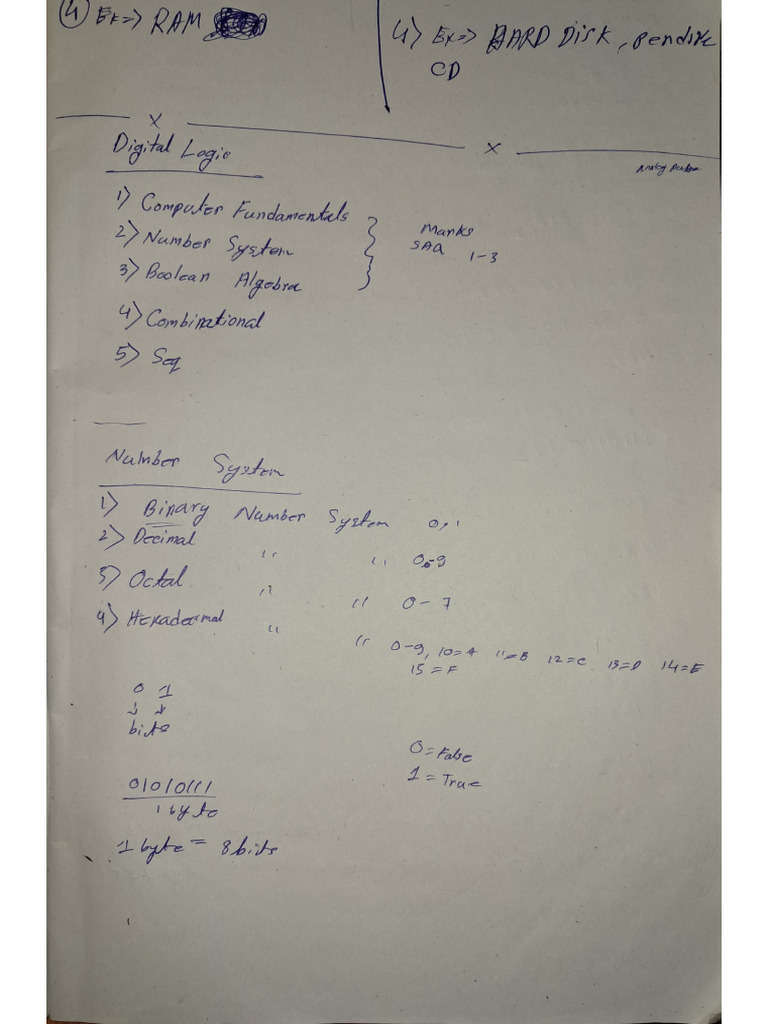 ④ Ex=> RAM
4) Ex=> HARD DISK, pendive
CD
x x
Digital Logic
1) Computer Fundamentals
2) Number System
3) Boolean Algebra
Marks
SAQ 1-3
4) Combinational
5) Seq
Number System
1) Binary Number System 0,1
2) Decimal " " 0-9
3) Octal " " 0-7
4) Hexadecimal " " 0-9, 10=A 11=B 12=C 13=D 14=E
15=F
0 1
↓ ↓
bits
0=False
1=True
01010111
1 byte
1 byte = 8 bits